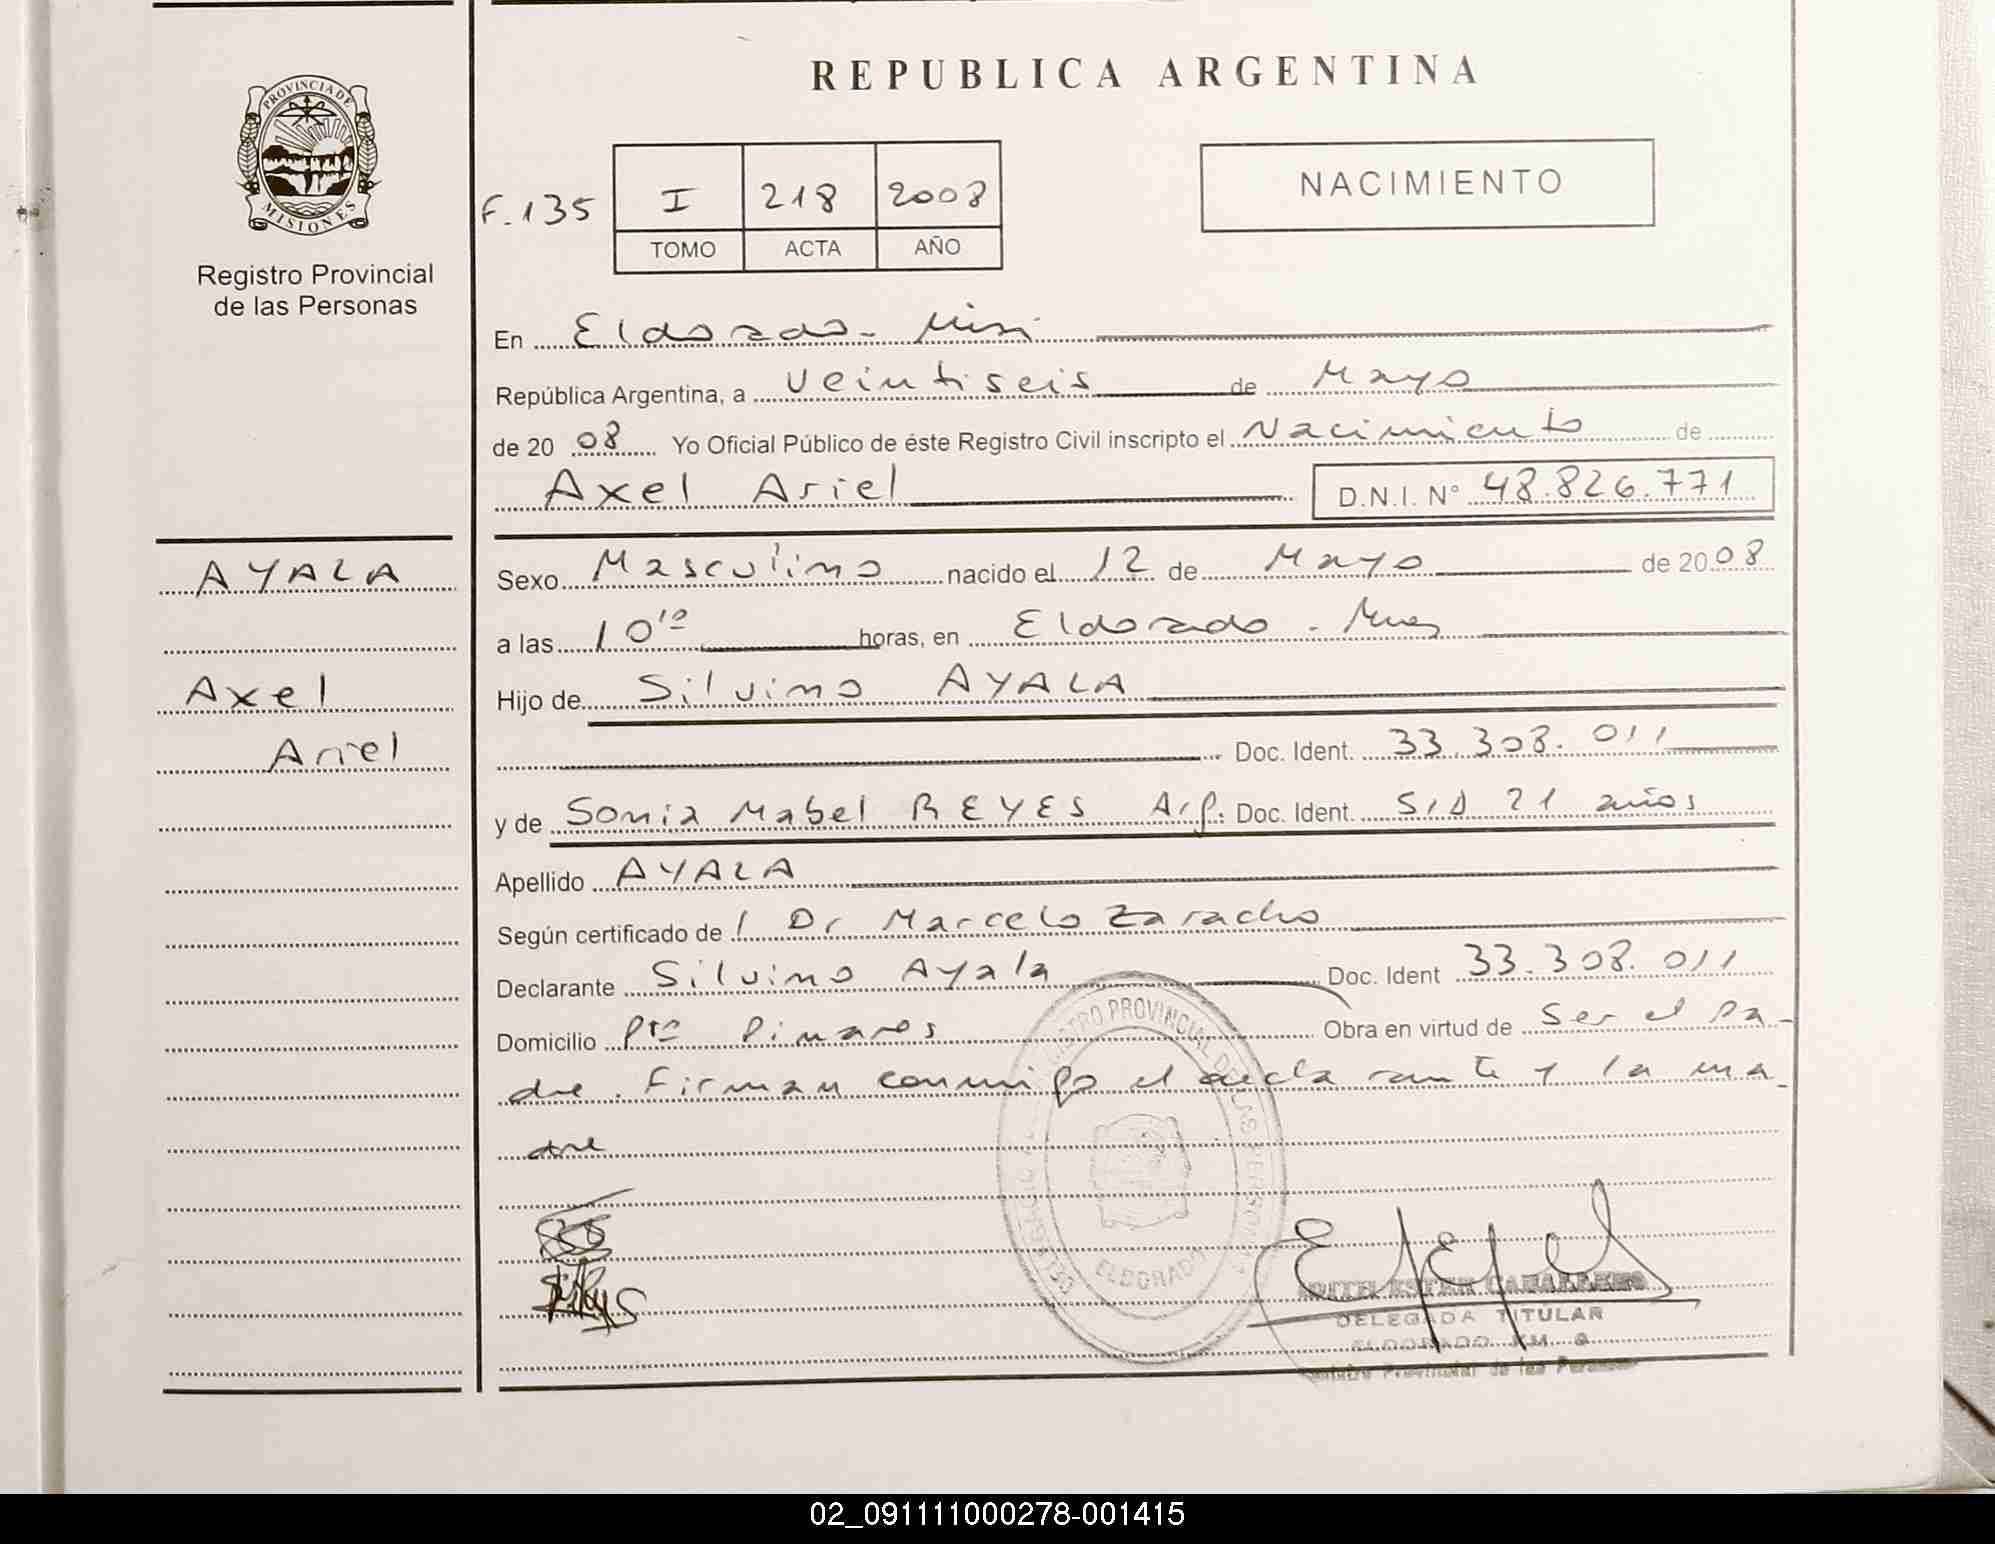 REPUBLICA ARGENTINA
PROVINCIA DE
MISIONES
Registro Provincial
de las Personas
F. 135
I 218 2008
TOMO ACTA AÑO
NACIMIENTO
En Eldorado - Mis
República Argentina, a veintiseis de Mayo
de 20 08 Yo Oficial Público de éste Registro Civil inscripto el Nacimiento de
Axel Ariel D.N.I. N° 48.826.771
AYALA
Sexo Masculino nacido el 12 de Mayo de 20 08
a las 10¹⁰ horas, en Eldorado - Mnes
Axel
Hijo de Silvino AYALA
Ariel
Doc. Ident. 33.308.011
y de Sonia Mabel REYES Arg. Doc. Ident. S/D 21 años
Apellido AYALA
Según certificado de / Dr Marcelo Zaracho
Declarante Silvino Ayala Doc. Ident 33.308.011
Domicilio Pto Pinares Obra en virtud de Ser el pa-
dre. Firman conmigo el declarante y la ma-
dre
REGISTRO PROVINCIAL DE LAS PERSONAS
ELDORADO
EDITH ESTER CABALLERO
DELEGADA TITULAR
ELDORADO KM. 9
Registro Provincial de las Personas
02_091111000278-001415